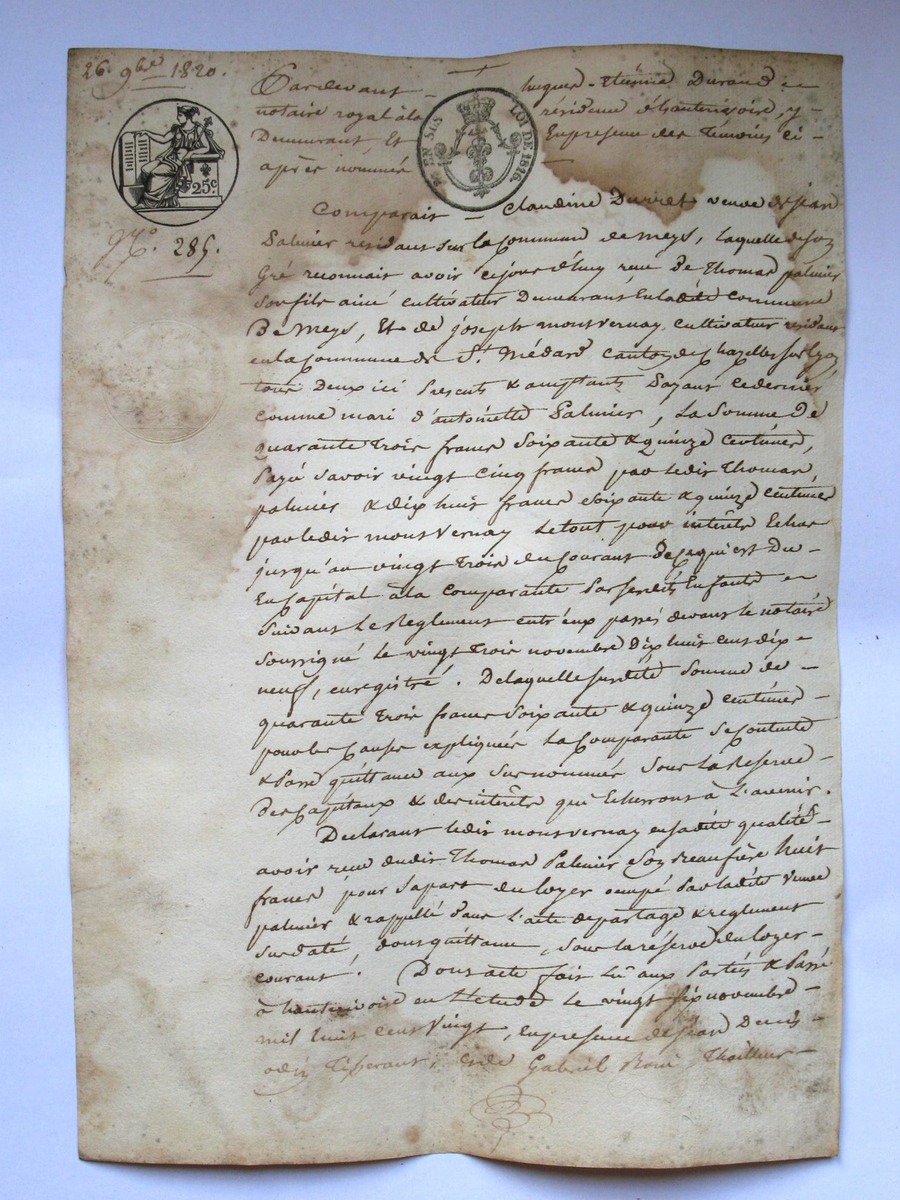 26. 9bre 1820.
Pardevant - hugues-Etienne Durand
notaire royal à la résidence d'hauterivoire, y
Demeurant, Et En presence des Temoins ci-
après nommés
25c.
EN SUS LOI DE 1816.
No. 285.
Comparait - Claudine Durret veuve de jean
Palmier résidant sur la commune de meys, laquelle de son
Gré reconnait avoir cejourd'huy reçu De Thomas palmier
Son fils ainé cultivateur Demeurant En ladite commune
De Meys, Et de joseph montvernay cultivateur résidant
en la Commune de St. Médard canton de Chazelles sur Lyon
tous Deux ici Présents & acceptants, Payant ce dernier
comme mari d'antoinette Palmier, La Somme De
quarante trois francs soixante & quinze Centimes,
Payé Savoir vingt cinq francs par ledit Thomas
palmier & dix huit francs soixante & quinze Centimes
par ledit montvernay Le tout pour intérêts Echus
jusqu'au vingt Trois du Courant De ce qui est Du -
En Capital à la comparante Par sesdits Enfants
Suivant Le Reglement entr'eux passé devant le notaire
soussigné le vingt Trois novembre Dix huit cent dix
neuf, enregistré. De laquelle susdite somme de -
quarante trois francs soixante & quinze centimes -
pour les Causes expliquées La Comparante se Contente
& Passe quittance aux susnommés sous la Réserve
Des Capitaux & des intérêts qui Echerront à L'avenir.
Declarant ledit montvernay en sadite qualité
avoir reçu dudit Thomas Palmier Son Beaufrère huit
francs pour sa part du loyer occupé Par ladite veuve
palmier & rappellé dans L'acte de partage & reglement
susdaté, dont quittance, sous la réserve du loyer -
courant. Dont acte fait lu aux Parties & Passé
à hauterivoire en L'etude le vingt six novembre -
mil huit cent vingt, En presence de jean Denis
odin Tisserant, & de Gabriel Tailleur